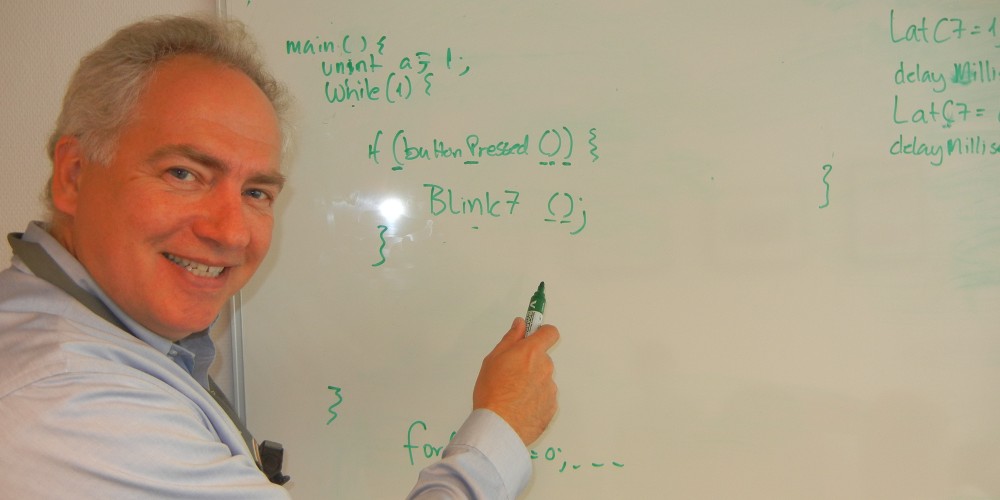 main () {
unint a = 1;
While (1) {
if (button Pressed ()) {
BLink7 ();
}
}
for = 0; - - -
Lat C7 = 1
delay Milli
Lat C7 =
delay Millis
}